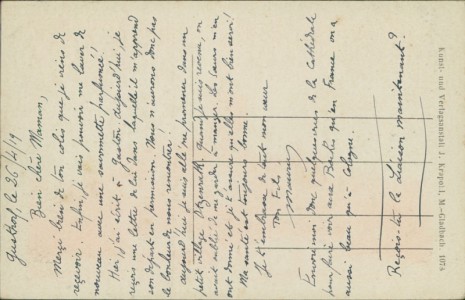 Gustorf, le 26/4/19
Bien chère Maman,
Merci bien de ton colis que je viens de
recevoir. Enfin, je vais pouvoir me laver de
nouveau avec une savonnette parfumée!!
Hier, j'ai écrit à Gaston. Aujourd'hui, je
reçois une lettre de lui dans laquelle il m'apprend
son départ en permission. Nous n'aurons donc pas
le bonheur de nous rencontrer!
Aujourd'hui je suis allé me promener dans un
petit village. Quand je suis revenu, on
avait oublié de me garder à manger. Les sœurs m'en
ont donné et je t'assure qu'elles m'ont bien servi!
Ma santé est toujours bonne.
Je t'embrasse de tout mon cœur
Ton fils
Maurice
Envoie moi donc quelques vues de la Cathédrale
pour faire voir aux Boches qu'en France on a
aussi beau qu'à Cologne.
Reçois-tu la Liaison maintenant?
Kunst- und Verlagsanstalt J. M.-Gladbach